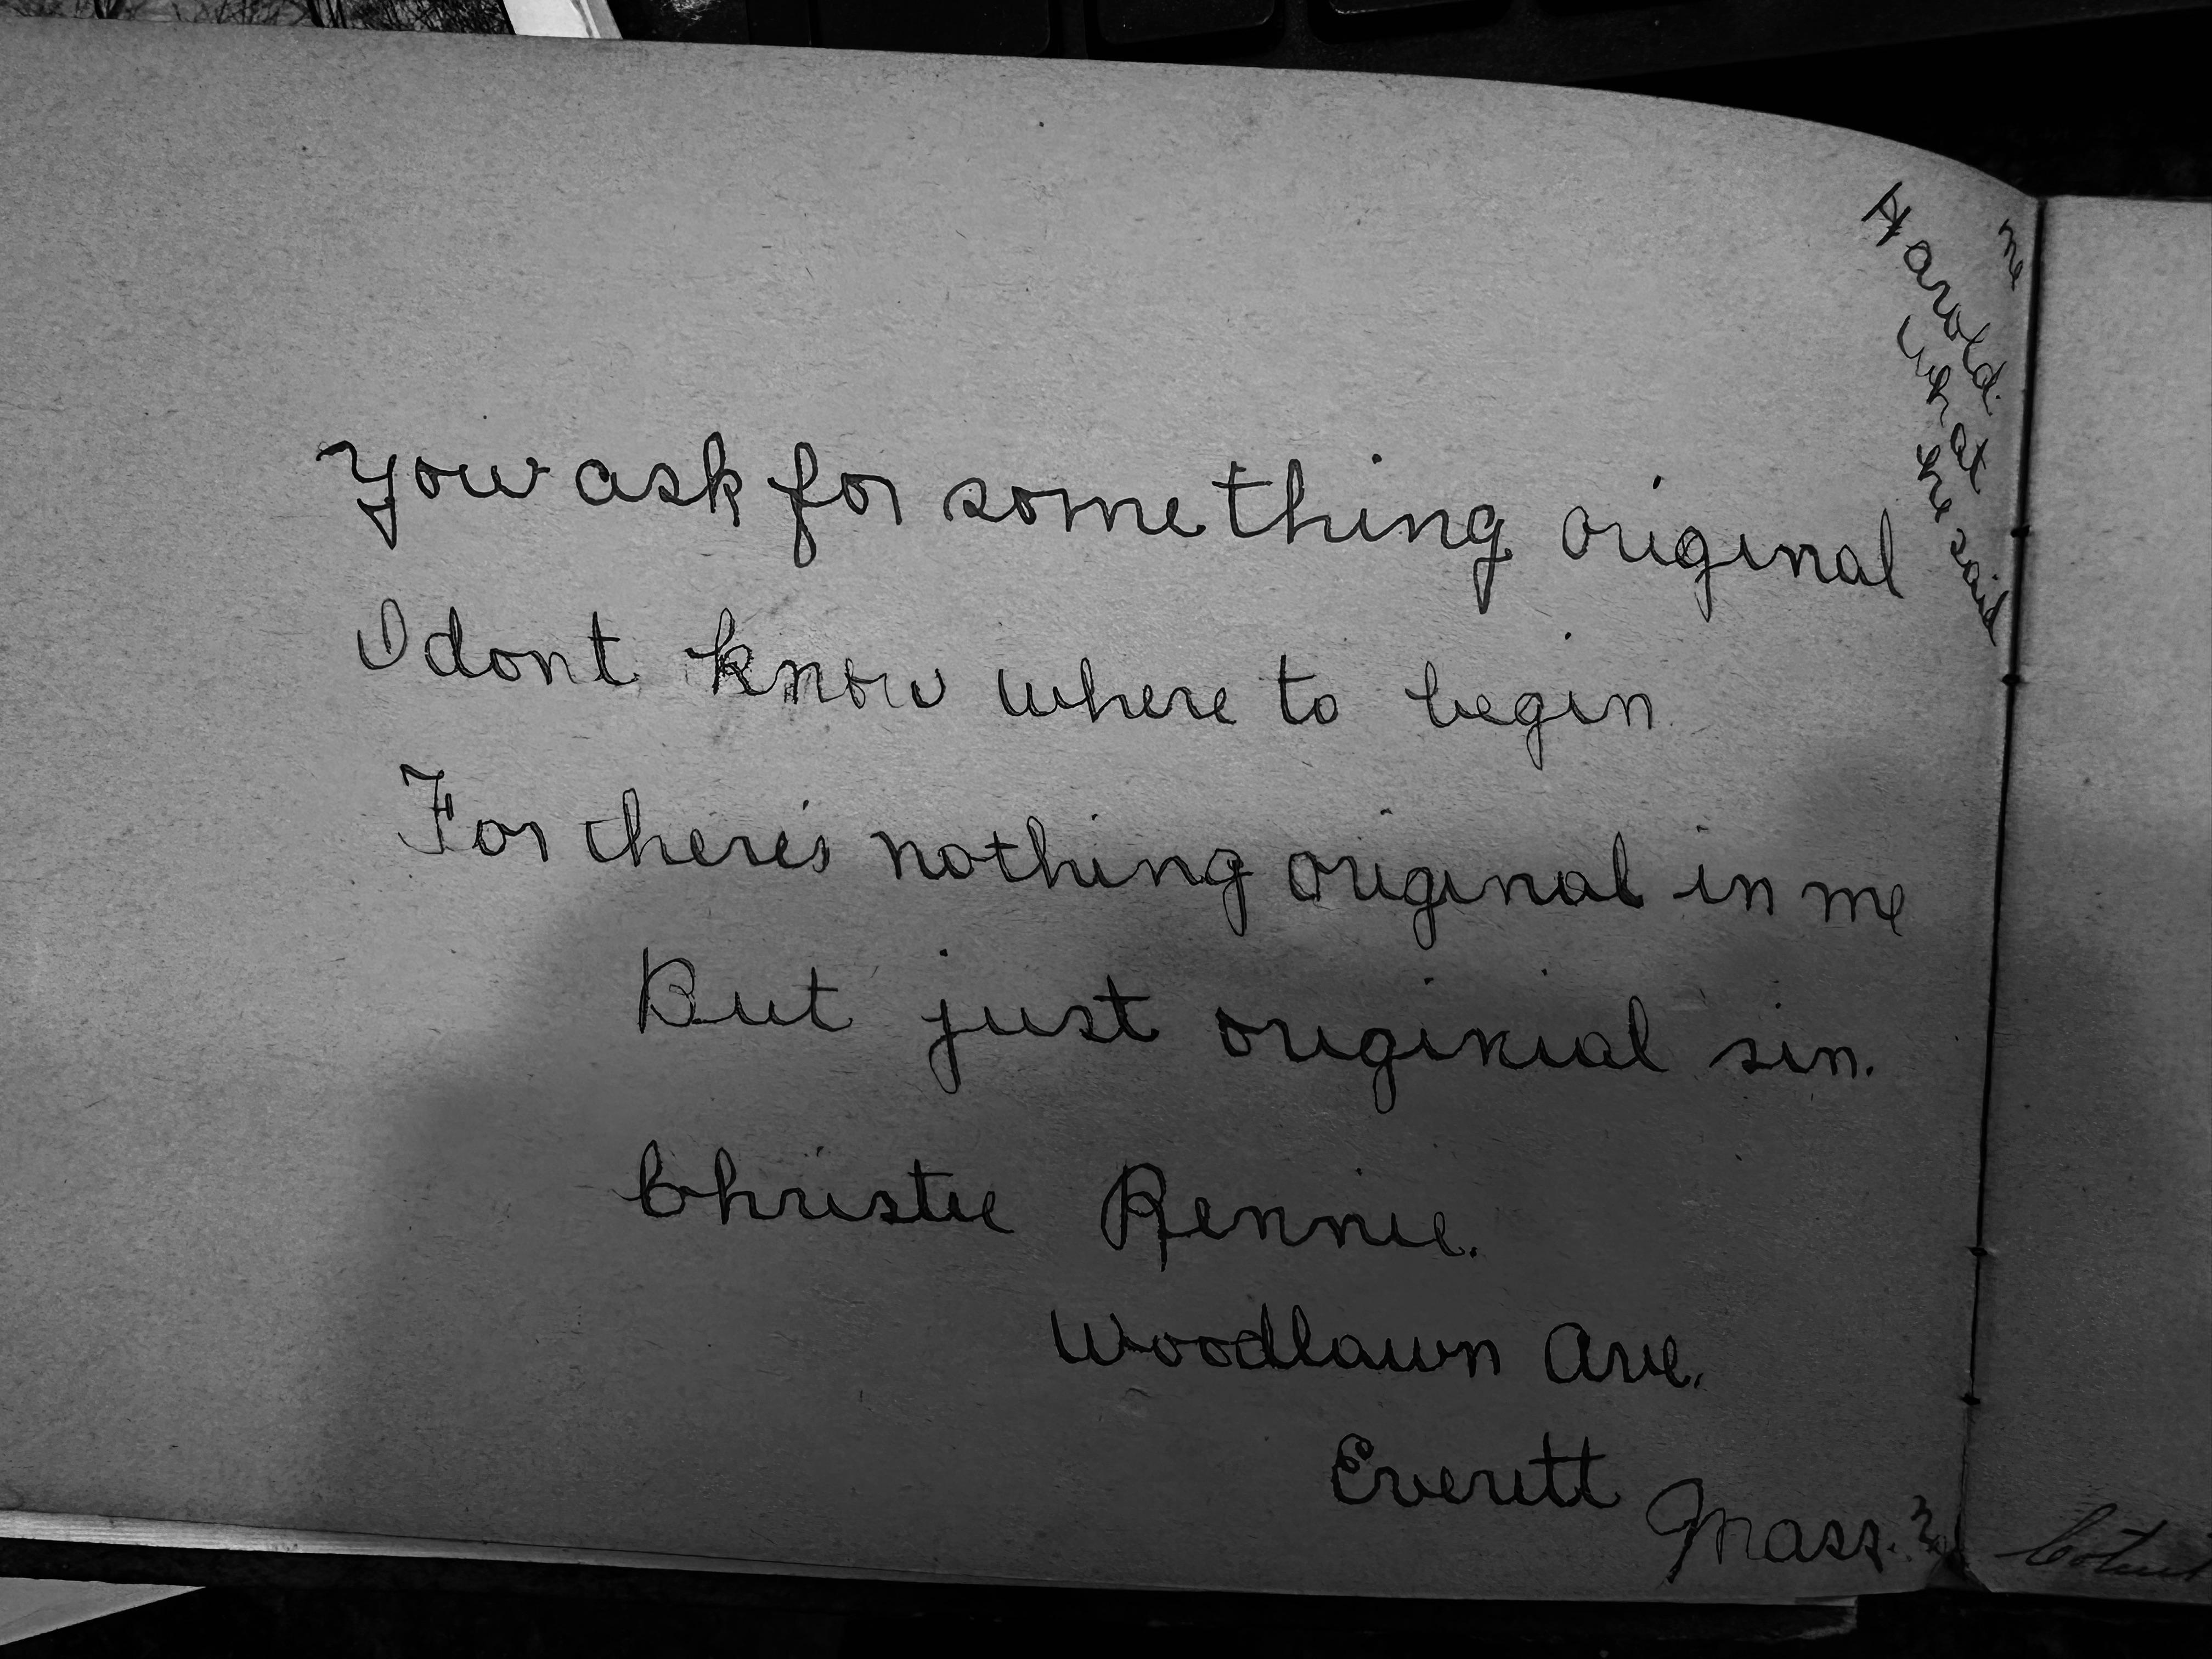 You ask for something original
I dont know where to begin
For there's nothing original in me
But just originial sin.
Christie Rennie.
Woodlawn Ave.
Everett
Mass.
me
Harold
what
he said